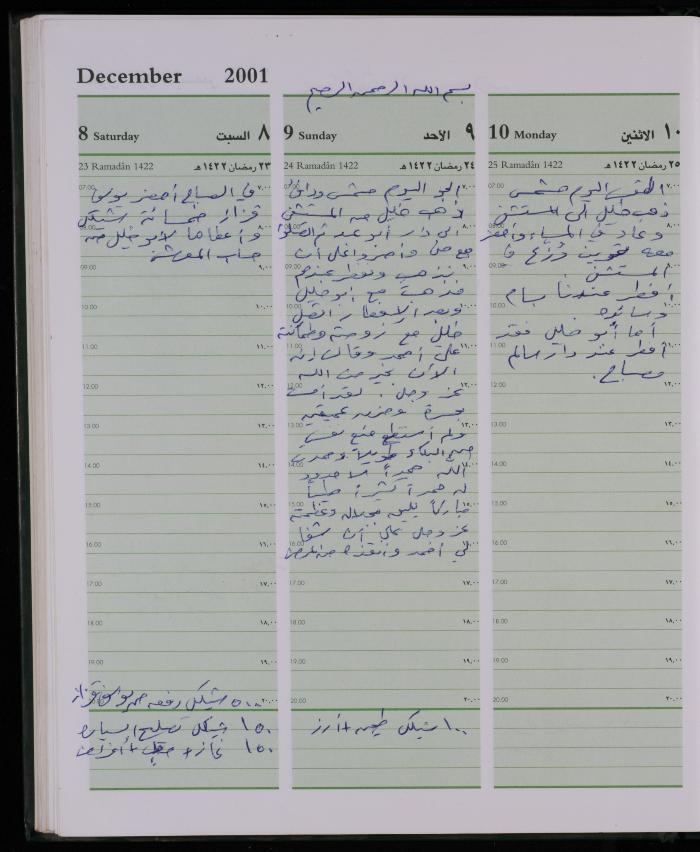 December 2001
بسم الله الرحمن الرحيم
8 Saturday السبت ٨
23 Ramadân 1422 ٢٣ رمضان ١٤٢٢ هـ
في الصباح أحضر يوسف
قزاز خمسمائة شيكل
وأعطاها لأبو خليل من
حساب المعرشة
07.00 ٧.٠٠
08.00 ٨.٠٠
09.00 ٩.٠٠
10.00 ١٠.٠٠
11.00 ١١.٠٠
12.00 ١٢.٠٠
13.00 ١٣.٠٠
14.00 ١٤.٠٠
15.00 ١٥.٠٠
16.00 ١٦.٠٠
17.00 ١٧.٠٠
18.00 ١٨.٠٠
19.00 ١٩.٠٠
٢٠.٠٠
٥٠٠ شيكل دفعه من يوسف قزاز
١٥٠ شيكل تصليح السيارة
١٥٠ غاز +
9 Sunday الأحد ٩
24 Ramadân 1422 ٢٤ رمضان ١٤٢٢ هـ
الجو اليوم مشمس ودافئ
ذهب خليل من المستشفى
الى دار أبو عدنان
مع منى وأصروا على أن
نذهب ونفطر عندهم
فذهبت مع أبو خليل
وبعد الإفطار اتصل
خليل مع زوجته وطمأنته
على أحمد وقالت إنه
الآن بخير من الله
عز وجل. لقد
بحسرة وحزن عميقين
ولم أستطع منع نفسي
من البكاء طويلا وحمدت
الله حمداً لا حدود
له حمداً كثيراً طيباً
مباركاً يليق بجلاله وعظمته
عز وجل على أن شفا
لي أحمد وأنقذه من المرض
07.00 ٧.٠٠
08.00 ٨.٠٠
09.00 ٩.٠٠
10.00 ١٠.٠٠
11.00 ١١.٠٠
12.00 ١٢.٠٠
13.00 ١٣.٠٠
14.00 ١٤.٠٠
15.00 ١٥.٠٠
16.00 ١٦.٠٠
17.00 ١٧.٠٠
18.00 ١٨.٠٠
19.00 ١٩.٠٠
20.00 ٢٠.٠٠
١٠٠ شيكل طحين + أرز
10 Monday الاثنين ١٠
25 Ramadân 1422 ٢٥ رمضان ١٤٢٢ هـ
الطقس اليوم مشمس
ذهب خليل الى المستشفى
وعاد في المساء وأحضر
معه تموين وُزِّع في
المستشفى.
أفطر عندنا بسام
وسائده
أما أبو خليل فقد
أفطر عند دار سالم
مصباح.
07.00 ٧.٠٠
08.00 ٨.٠٠
09.00 ٩.٠٠
10.00 ١٠.٠٠
11.00 ١١.٠٠
12.00 ١٢.٠٠
13.00 ١٣.٠٠
14.00 ١٤.٠٠
15.00 ١٥.٠٠
16.00 ١٦.٠٠
17.00 ١٧.٠٠
18.00 ١٨.٠٠
19.00 ١٩.٠٠
20.00 ٢٠.٠٠